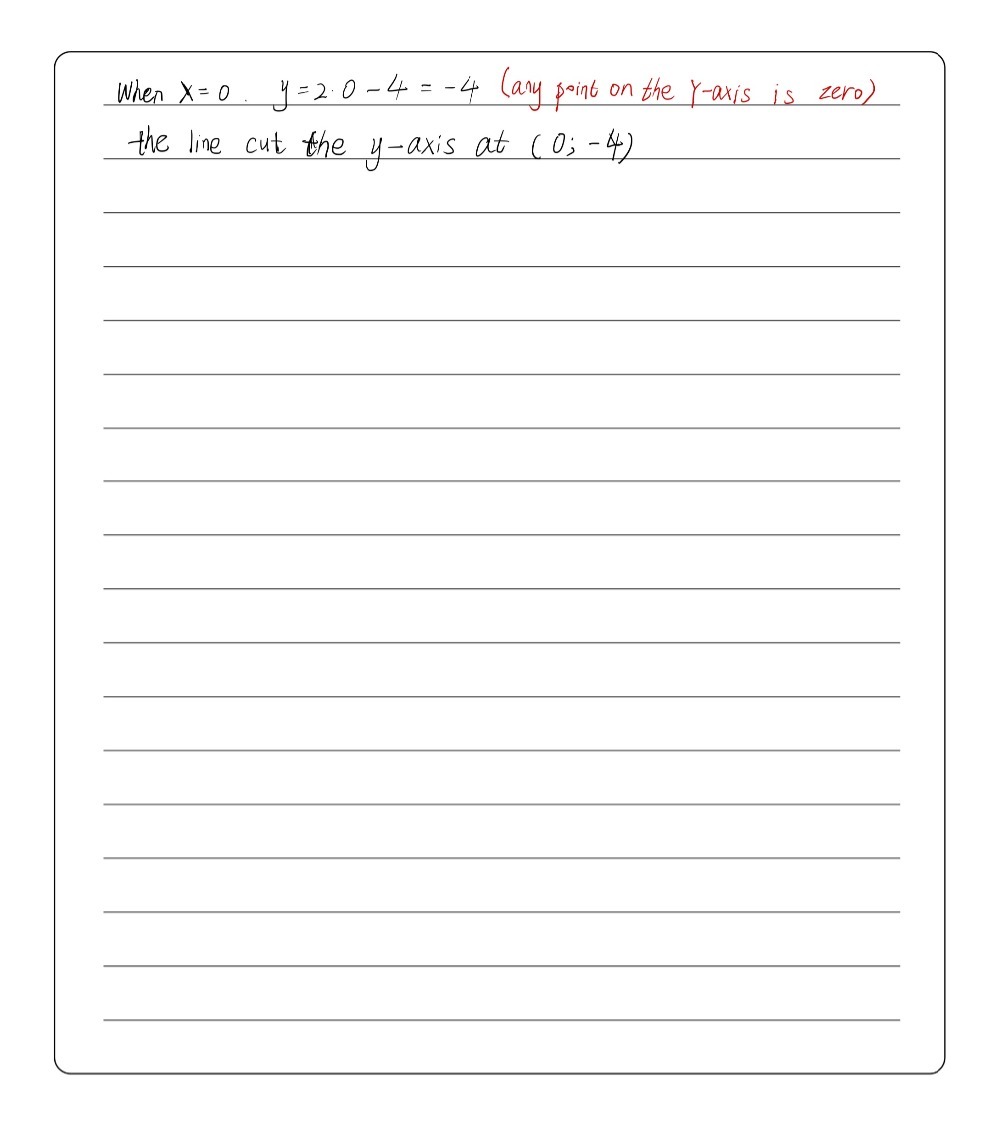 When x=0. y=2·0-4=-4 (any point on the Y-axis is zero)
the line cut the y-axis at (0; -4)